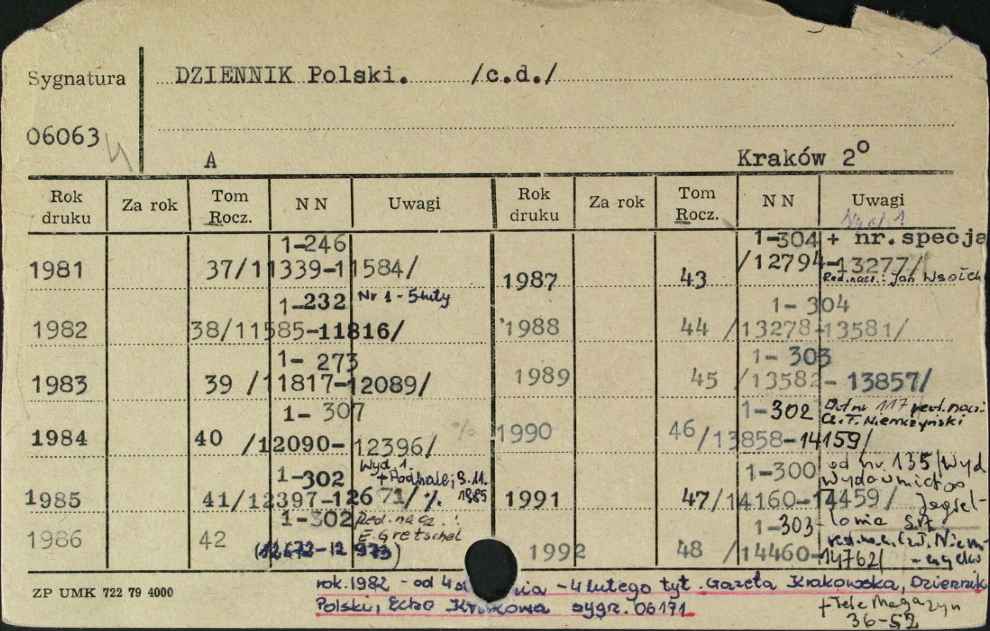 Sygnatura DZIENNIK Polski. /c.d./
06063
A Kraków 2°
Rok druku Za rok Tom Rocz. N N Uwagi Rok druku Za rok Tom Rocz. N N Uwagi
1981 37/11339-11584/ 1-246
1982 38/11585-11816/ 1-232 Nr 1 - 5 luty
1983 39 /11817-12089/ 1- 273
1984 40 /12090-12396/ 1- 307
1985 41/12397-12671/ 1-302 Wyd. 1. + Podhale; 8.11. 1985
1986 42 (12672-12973) 1-302 Red. nacz.: E. Gretschel
1987 43 /12794-13277/ 1-304 + nr.specja Red. nacz.: Jan
1988 44 /13278-13581/ 1- 304
1989 45 /13582- 13857/ 1- 303
1990 46/13858-14159/ 1-302 Od nr 117 red. nacz. Niemczyński
1991 47/14160-14459/ 1-300 od nr. 135 Wyd. Wydawnictwo
1992 48 /14460-14762/ 1-303
ZP UMK 722 79 4000
rok.1982 - od 4 - 4 lutego tyt. Gazeta Krakowska, Dziennik
Polski, Echo Krakowa sygr. 06171
+ Tele Magazyn
36-52